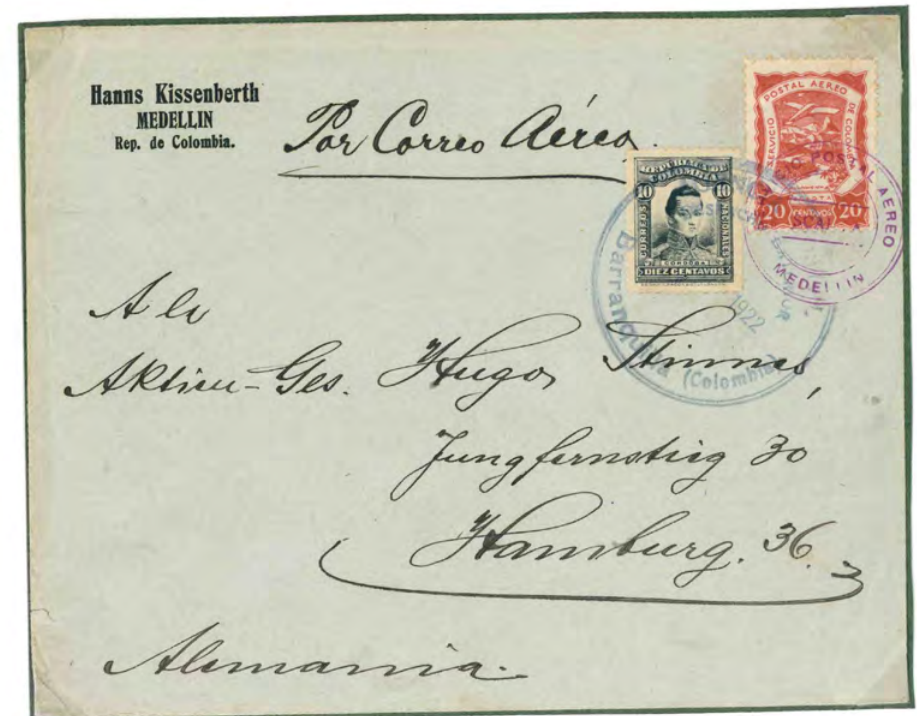 Hanns Kissenberth
MEDELLIN
Rep. de Colombia.
Por Correo Aéreo
SERVICIO POSTAL AEREO DE COLOMBIA
20 CENTAVOS 20
POSTAL AEREO
SCADTA
MEDELLIN
REPUBLICA DE
COLOMBIA
10 10
CORREOS NACIONALES
CORDOBA
DIEZ CENTAVOS
1922
Barranquilla (Colombia)
A la
Aktien-Ges. Hugo Stinnes,
Jungfernstieg 30
Hamburg. 36.
Alemania.